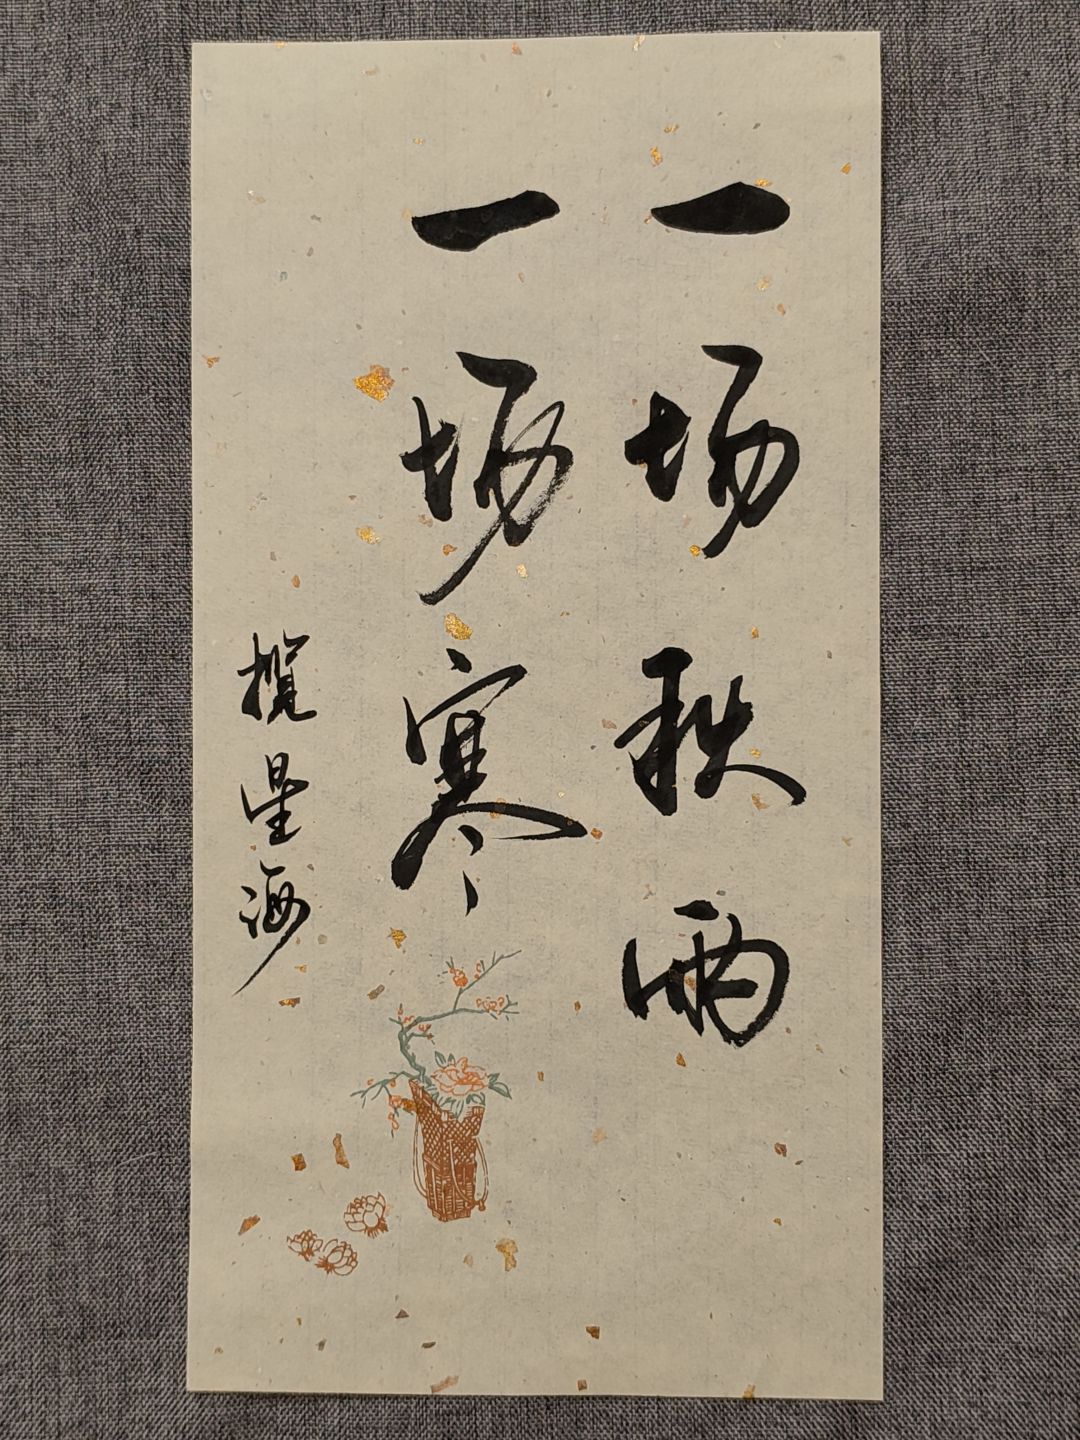 一场秋雨
一场寒
揽星海